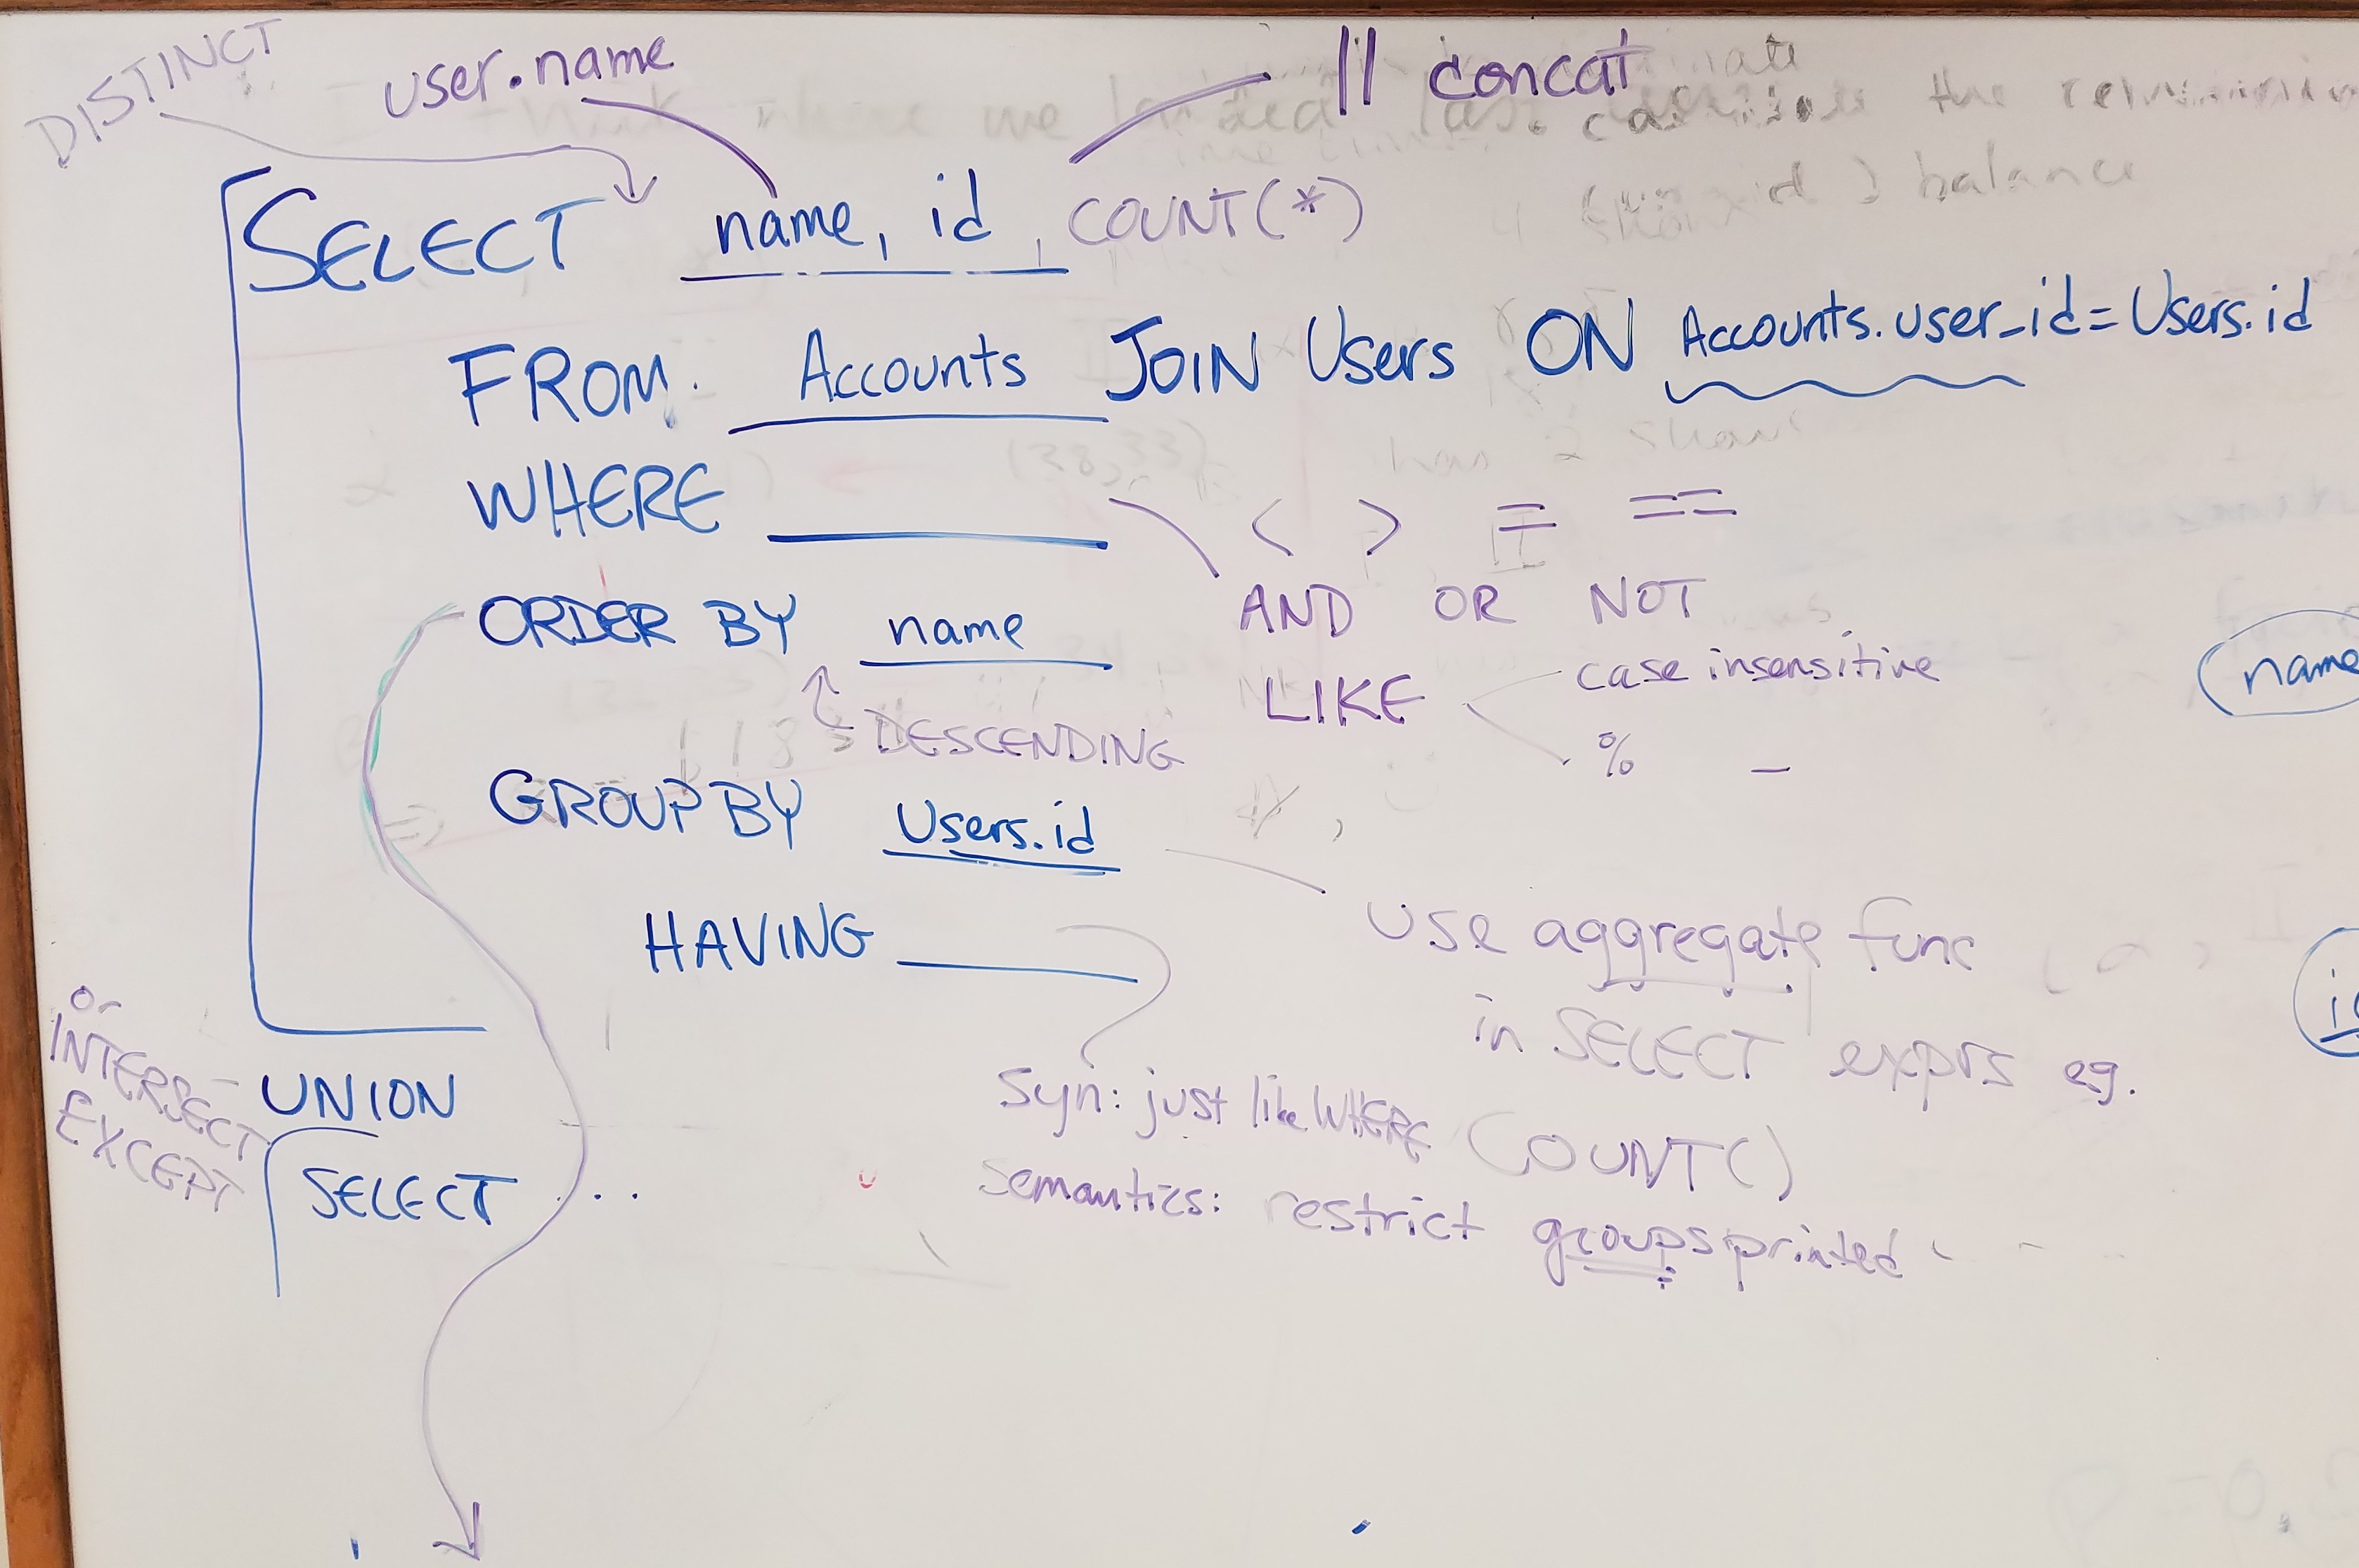 DISTINCT
user.name
|| concat
SELECT name, id, COUNT(*)
FROM Accounts JOIN Users ON Accounts.user_id=Users.id
WHERE
< > = ==
AND OR NOT
LIKE
case insensitive
% _
ORDER BY name
DESCENDING
GROUP BY Users.id
use aggregate func
in SELECT exprs eg.
COUNT()
HAVING
Syn: just like WHERE
Semantics: restrict groups printed
or
INTERSECT
EXCEPT
UNION
SELECT ...
name
balance
has 2